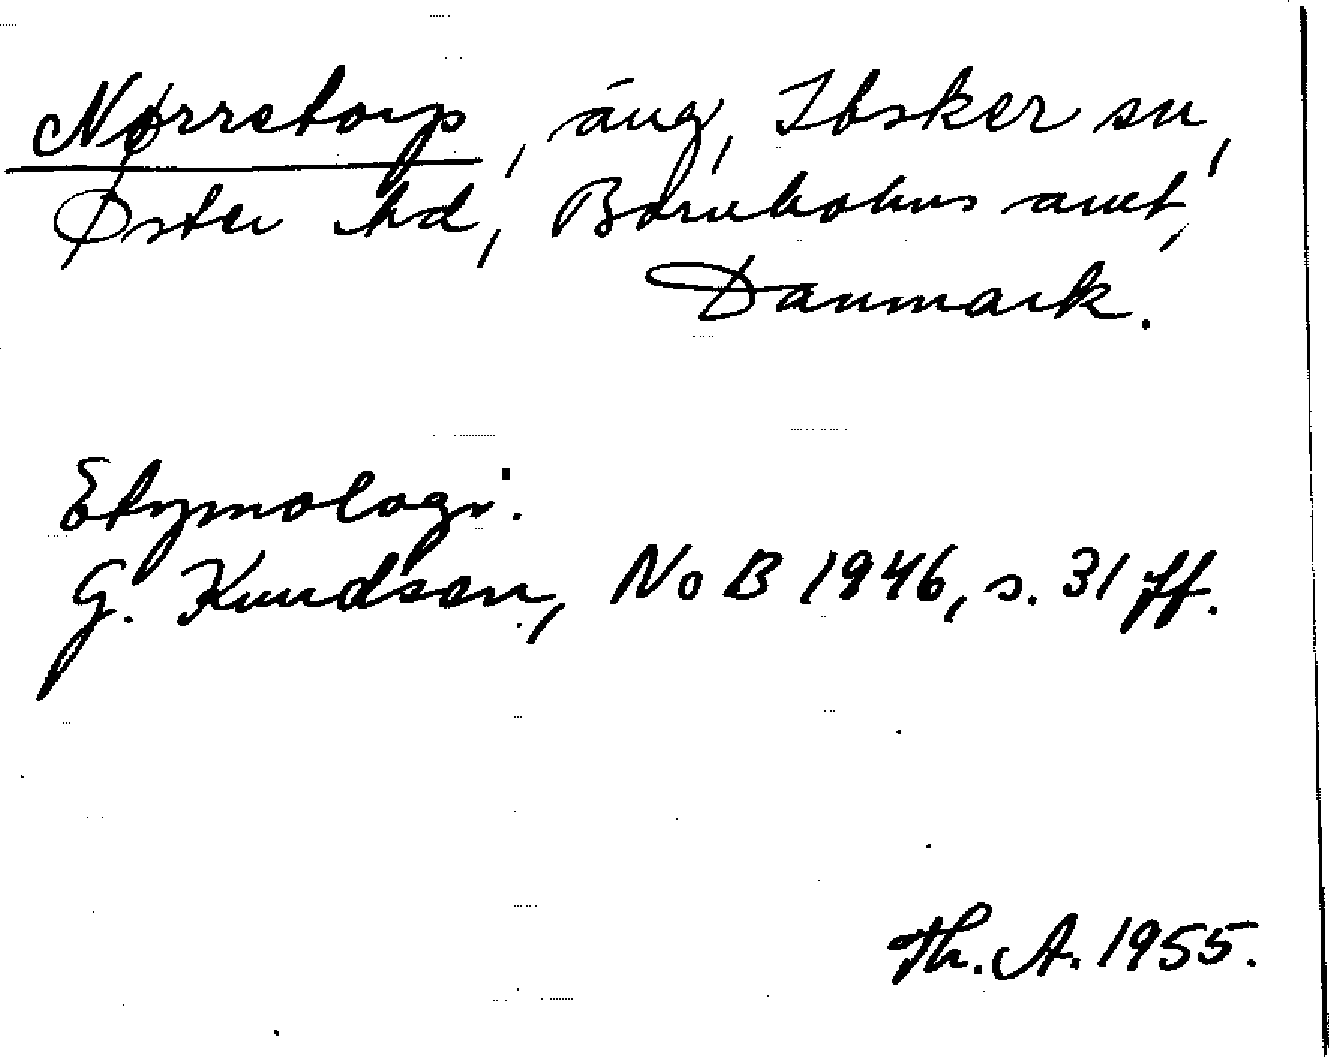 Nørretorp, äng, Ibsker sn,
Øster hd, Bornholms amt,
Danmark.
Etymologi:
G. Knudsen, NoB 1946, s. 31 ff.
Th. A. 1955.